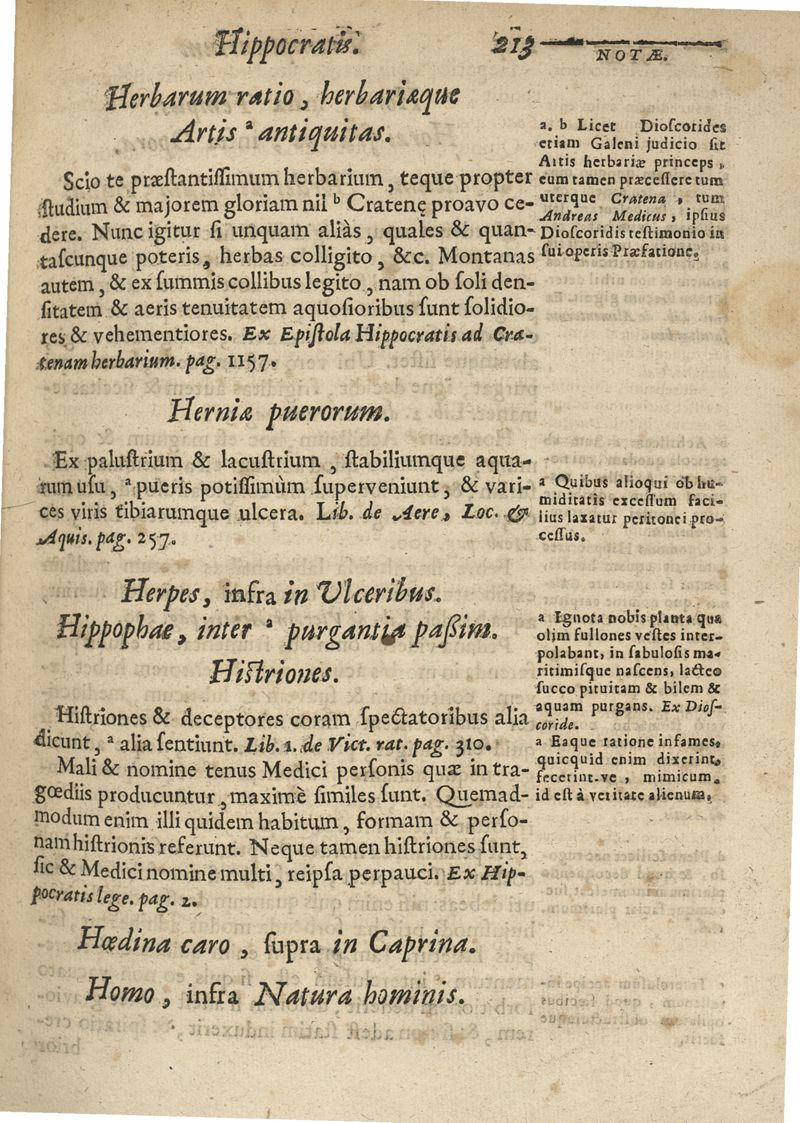 Hippocratis. 213
NOTÆ.
Herbarum ratio, herbariæque
Artis ᵃ antiquitas.
Scio te præſtantiſſimum herbarium, teque propter
ſtudium & majorem gloriam nil ᵇ Cratenę proavo ce-
dere. Nunc igitur ſi unquam aliàs, quales & quan-
taſcunque poteris, herbas colligito, &c. Montanas
autem, & ex ſummis collibus legito, nam ob ſoli den-
ſitatem & aeris tenuitatem aquoſioribus ſunt ſolidio-
res & vehementiores. Ex Epiſtola Hippocratis ad Cra-
tenam herbarium. pag. 1157.
a. b Licet Dioſcorides
etiam Galeni judicio ſit
Artis herbariæ princeps,
eum tamen præceſſere tum
uterque Cratena, tum
Andreas Medicus, ipſius
Dioſcoridis teſtimonio in
ſui operis Præfatione.
Herniæ puerorum.
Ex paluſtrium & lacuſtrium, ſtabiliumque aqua-
rum uſu, ᵃ pueris potiſſimùm ſuperveniunt, & vari-
ces viris tibiarumque ulcera. Lib. de Aere, Loc. &
Aquis. pag. 257.
a Quibus alioqui ob hu-
miditatis exceſſum faci-
lius laxatur peritonei pro-
ceſſus.
Herpes, infra in Ulceribus.
Hippophae, inter ᵃ purgantia paßim.
a Ignota nobis planta qua
olim fullones veſtes inter-
polabant, in ſabuloſis ma-
ritimiſque naſcens, lacteo
ſucco pituitam & bilem &
aquam purgans. Ex Dioſ-
coride.
Hiſtriones.
Hiſtriones & deceptores coram ſpectatoribus alia
dicunt, ᵃ alia ſentiunt. Lib. 1. de Vict. rat. pag. 310.
Mali & nomine tenus Medici perſonis quæ in tra-
gœdiis producuntur, maximè ſimiles ſunt. Quemad-
modum enim illi quidem habitum, formam & perſo-
nam hiſtrionis referunt. Neque tamen hiſtriones ſunt,
ſic & Medici nomine multi, reipſa perpauci. Ex Hip-
pocratis lege. pag. 2.
a Eaque ratione infames,
quicquid enim dixerint,
fecerint-ve, mimicum,
id eſt à veritate alienum.
Hœdina caro, ſupra in Caprina.
Homo, infra Natura hominis.